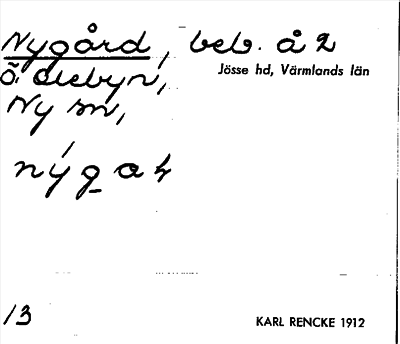 Nygård, beb. å 2
Jösse hd, Värmlands län
Ö. debyn,
Ny sn,
13
KARL RENCKE 1912